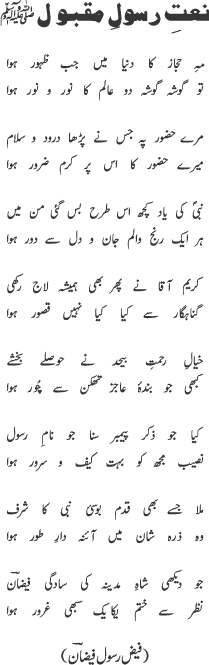 نعتِ رسولِ مقبول ﷺ
مہِ حجاز کا دنیا میں جب ظہور ہوا
تو گوشہ گوشہ دو عالم کا نور و نور ہوا
مرے حضور پہ جس نے پڑھا درود و سلام
میرے حضور کا اس پر کرم ضرور ہوا
نبیؐ کی یاد کچھ اس طرح بس گئی من میں
ہر ایک رنج والم جان و دل سے دور ہوا
کریم آقا نے پھر بھی ہمیشہ لاج رکھی
گناہگار سے کیا کیا نہیں قصور ہوا
خیالِ رحمتِ بیحد نے حوصلے بخشے
کبھی جو بندۂ عاجز تھکن سے چُور ہوا
کیا جو ذکرِ پیمبر سنا جو نامِ رسول
نصیب مجھ کو بہت کیف و سرور ہوا
ملا جسے بھی قدم بوسیٔ نبی کا شرف
وہ ذرہ شان میں آئنہ دارِ طور ہوا
جو دیکھی شاہِ مدینہ کی سادگی فیضانؔ
نظر سے ختم یکایک سبھی غرور ہوا
(فیض رسول فیضانؔ)